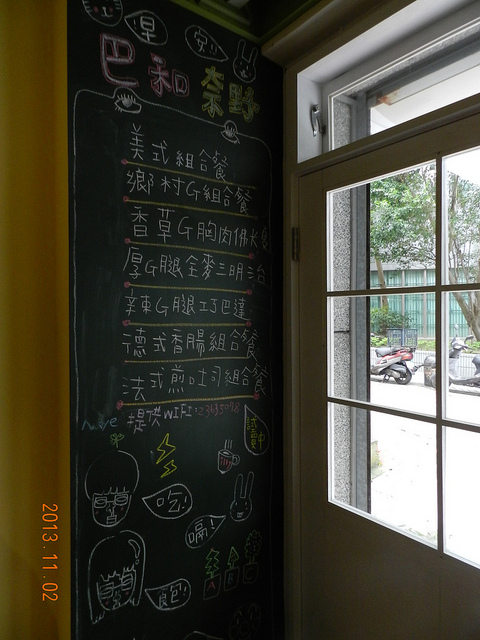 早
安!
巴和奈野
美式組合餐
鄉村G組合餐
香草G胸肉佛卡夏
厚G腿全麥三明治
辣G腿巧巴達
德式香腸組合餐
法式煎吐司組合餐
提供WIFI:
吃!
嗝!
飽!
2013.11.02